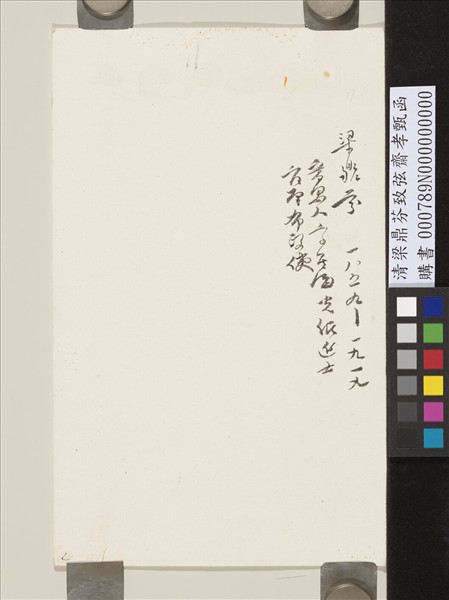 梁鼎芬 一八五九—一九一九
番禺人字星海光緒進士
官布政使
清梁鼎芬致弦齋孝甄函
購書 000789N000000000